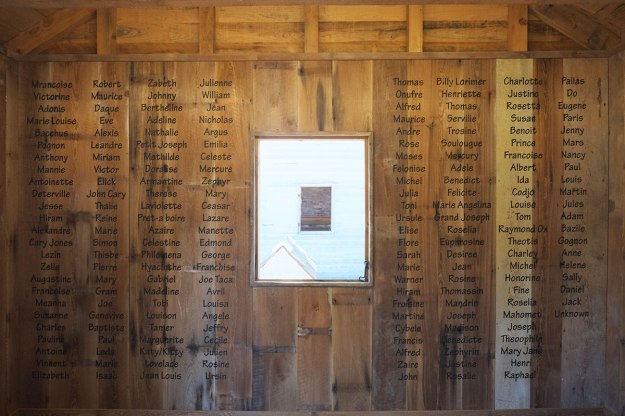 Mrancoise
Victorine
Adonis
Marie Louise
Bacchus
Pognon
Anthony
Mannie
Antoinette
Deterville
Jesse
Hiram
Alexandre
Cary Jones
Lezin
Zelie
Augustine
Francoise
Meanna
Suzanne
Charles
Pauline
Antoine
Vincent
Elizabeth
Robert
Maurice
Daque
Eve
Alexis
Leandre
Miriam
Victor
Elick
John Cary
Thalie
Reine
Marie
Simon
Thisbe
Pierre
Mary
Gram
Joe
Genevive
Baptiste
Paul
Leda
Marie
Isaac
Zabeth
Johnny
Bertheline
Adeline
Nathalie
Petit Joseph
Mathilde
Doralise
Armantine
Therese
Laviolette
Pret-a-boire
Azaire
Celestine
Philogene
Hyacinthe
Gabriel
Madeline
Tobi
Louison
Tanjer
Marguerite
Kitty/Kitty
Lovelace
Jean Louis
Julienne
William
Jean
Nicholas
Argus
Emilia
Celeste
Mercure
Zephyr
Mary
Ceasar
Lazare
Manette
Edmond
George
Francoise
Joe Taca
Avril
Louisa
Angele
Jeffry
Cecile
Julien
Rosine
Ursin
Thomas
Onufre
Alfred
Maurice
Andre
Rose
Moses
Felonise
Michel
Julia
Toni
Ursule
Elise
Flore
Sarah
Marie
Warner
Hiram
Frosene
Martine
Cybele
Francis
Alfred
Zaire
John
Billy Lorimer
Henriette
Thomas
Serville
Trosine
Soulougue
Mercury
Adele
Benedict
Felicite
Marie Angelina
Grand Joseph
Roselia
Euphrosine
Desiree
Jean
Rosine
Thomassin
Mandrin
Joseph
Madison
Benedicte
Zephyrin
Justin
Rosalie
Charlotte
Justine
Rosetta
Susan
Benoit
Prince
Francoise
Albert
Ida
Codjo
Louise
Tom
Raymond Ox
Theotis
Charley
Michel
Honorine
Fine
Roselia
Mahomet
Joseph
Theophile
Mary Jane
Henri
Raphael
Pallas
Do
Eugene
Paris
Jenny
Mars
Nancy
Paul
Louis
Martin
Jules
Adam
Bazile
Gognon
Anne
Helene
Sally
Daniel
Jack
Unknown